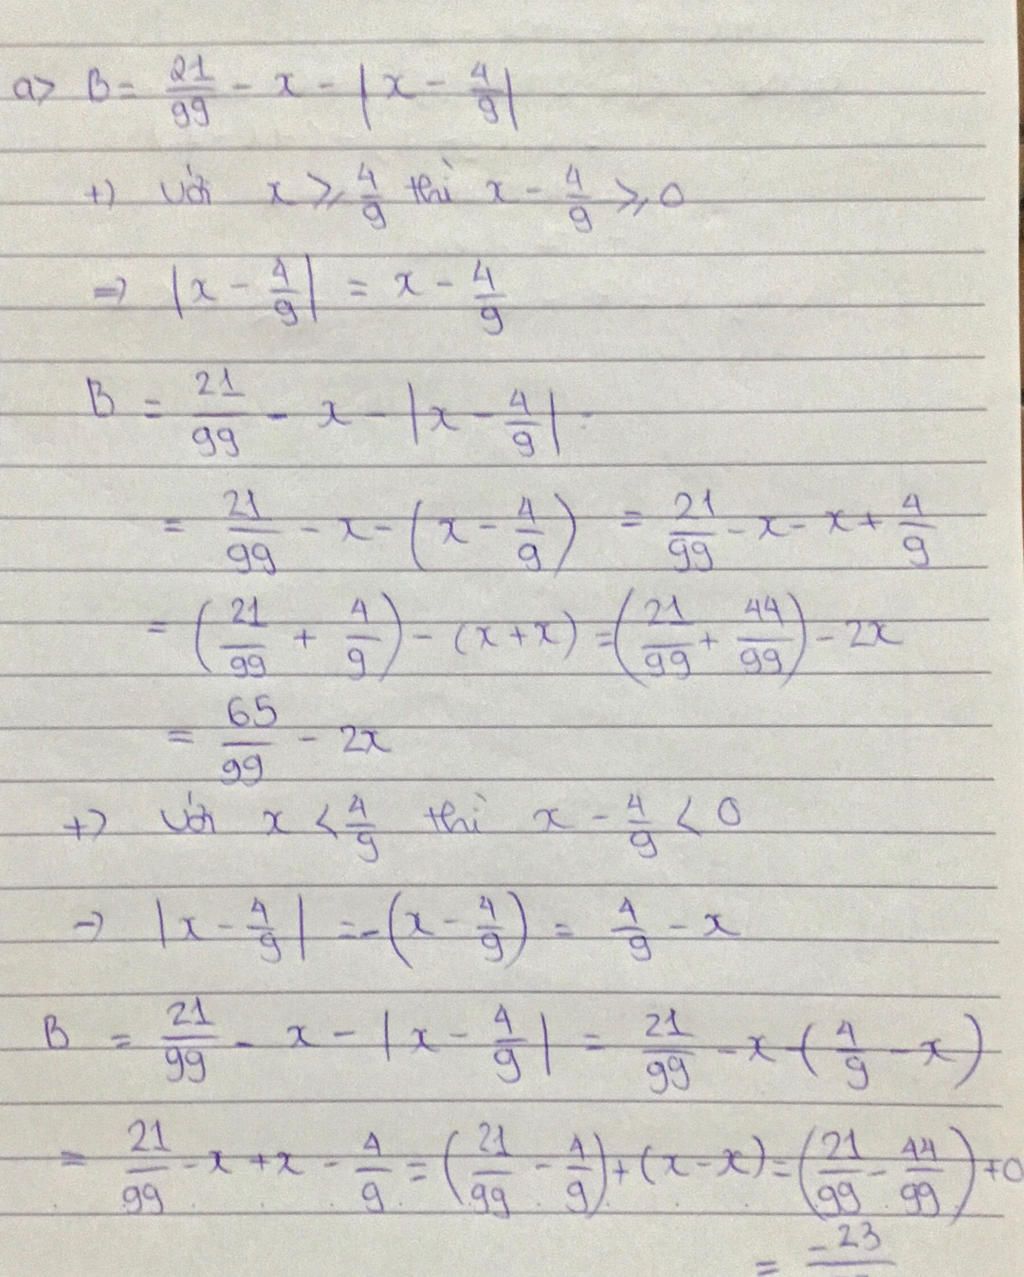 a> B = 21/99 - x - |x - 4/9|
+) Với x ⩾ 4/9 thì x - 4/9 ⩾ 0
=> |x - 4/9| = x - 4/9
B = 21/99 - x - |x - 4/9|
= 21/99 - x - (x - 4/9) = 21/99 - x - x + 4/9
= (21/99 + 4/9) - (x + x) = (21/99 + 44/99) - 2x
= 65/99 - 2x
+) Với x < 4/9 thì x - 4/9 < 0
=> |x - 4/9| = -(x - 4/9) = 4/9 - x
B = 21/99 - x - |x - 4/9| = 21/99 - x - (4/9 - x)
= 21/99 - x + x - 4/9 = (21/99 - 4/9) + (x - x) = (21/99 - 44/99) + 0
= -23